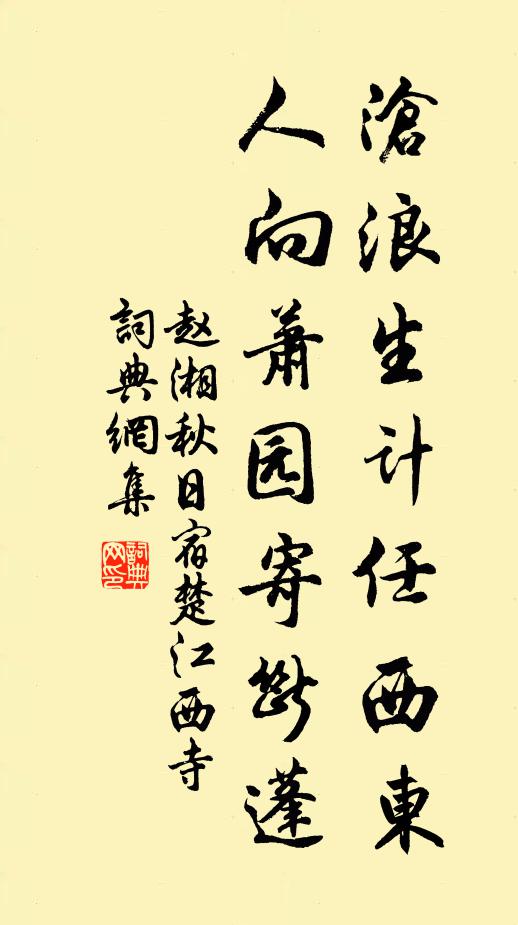 滄浪生计任西東
人向萧园寄断蓬
赵湘秋日宿楚江西寺
詞典網集
詞典網印